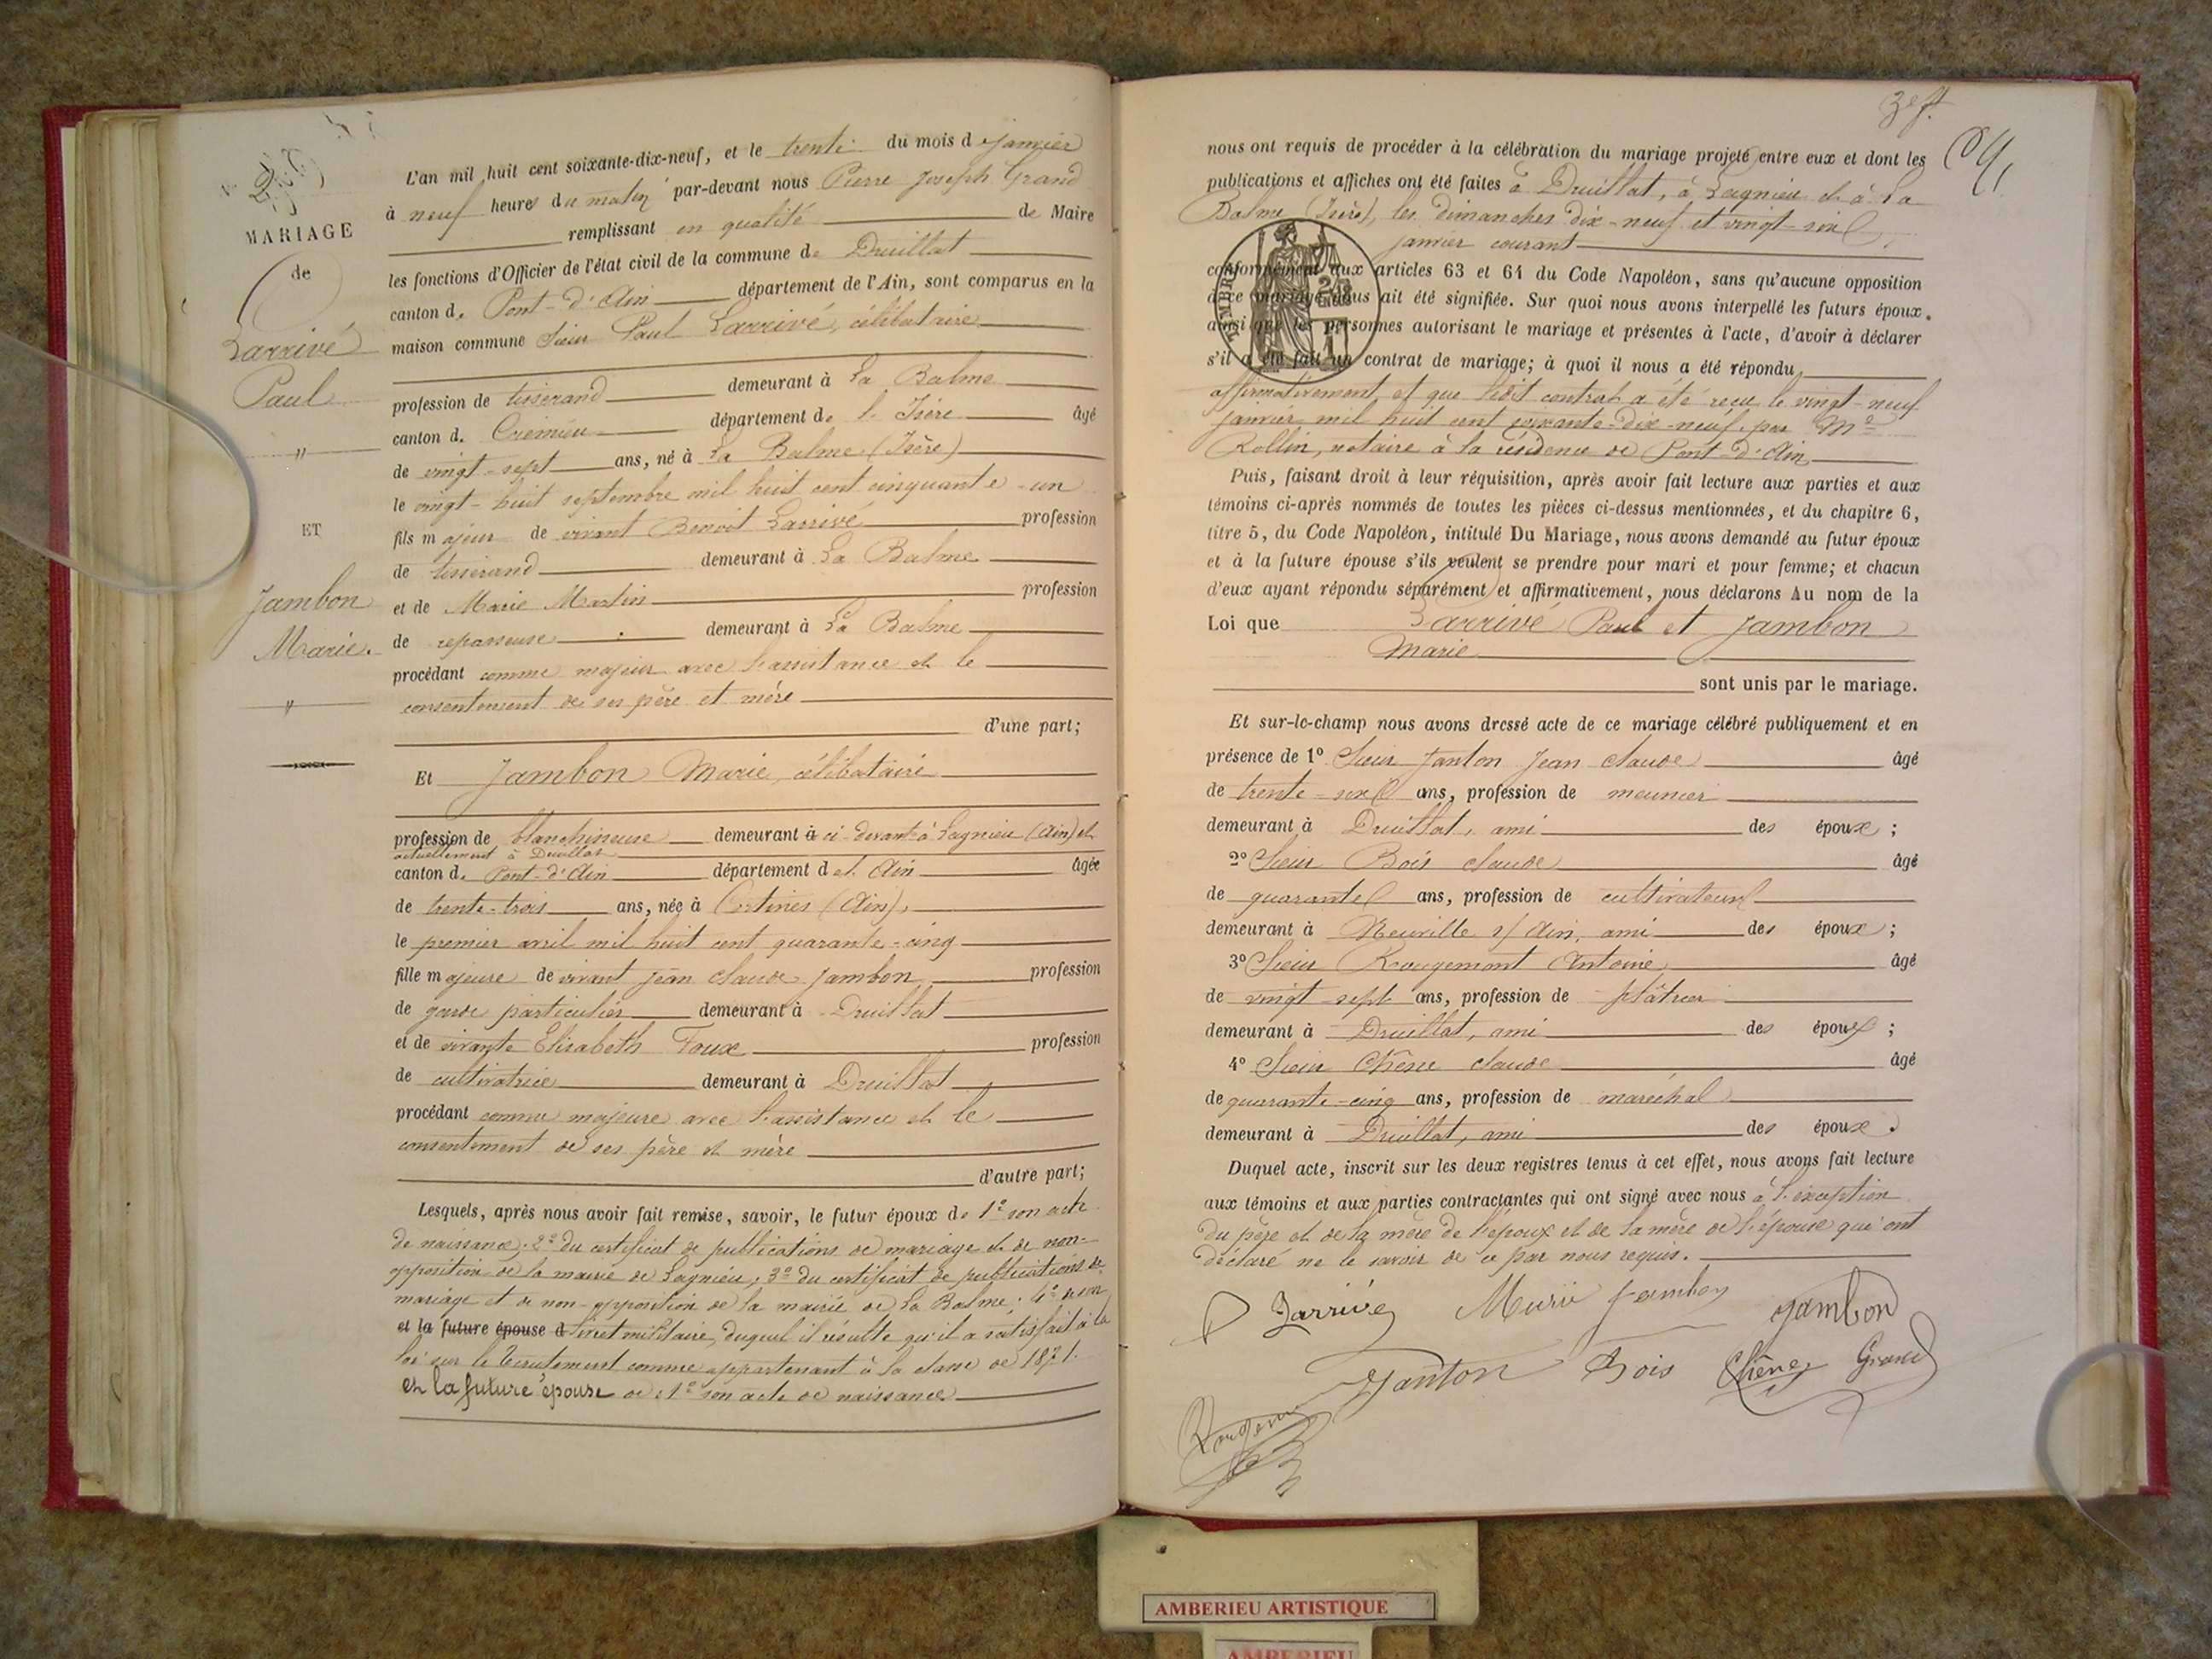 MARIAGE
de
Larrivé
Paul
"
ET
Jambon
Marie.
"
L'an mil huit cent soixante-dix-neuf, et le trente du mois d janvier
à neuf heures du matin par-devant nous Pierre Joseph Grand
remplissant en qualité de Maire
les fonctions d'Officier de l'état civil de la commune de Druillat
canton de Pont-d'Ain département de l'Ain, sont comparus en la
maison commune Sieur Paul Larrivé, célibataire
profession de tisserand demeurant à La Balme
canton de Crémieu département de l'Isère âgé
de vingt-sept ans, né à La Balme (Isère)
le vingt-huit septembre mil huit cent cinquante-un
fils majeur de vivant Benoit Larrivé profession
de tisserand demeurant à La Balme
et de Marie Martin profession
de repasseuse demeurant à La Balme
procédant comme majeur avec l'assistance et le
consentement de ses père et mère
d'une part;
Et Jambon Marie, célibataire
profession de blanchisseuse demeurant à ci-devant à Lagnieu (Ain) et
actuellement à Druillat
canton de Pont-d'Ain département de l'Ain âgée
de trente-trois ans, née à Certines (Ain),
le premier avril mil huit cent quarante-cinq
fille majeure de vivant Jean Claude Jambon profession
de garde particulier demeurant à Druillat
et de vivante Elisabeth Foux profession
de cultivatrice demeurant à Druillat
procédant comme majeure avec l'assistance et le
consentement de ses père et mère
d'autre part;
Lesquels, après nous avoir fait remise, savoir, le futur époux de 1º son acte
de naissance; 2º du certificat de publications de mariage et de non-
opposition de la mairie de Lagnieu; 3º du certificat de publications de
mariage et de non-opposition de la mairie de La Balme; 4º de son
et la future épouse d livret militaire, duquel il résulte qu'il a satisfait à la
loi sur le recrutement comme appartenant à la classe de 1871.
et la future épouse de: 1º son acte de naissance
3e f.
nous ont requis de procéder à la célébration du mariage projeté entre eux et dont les
publications et affiches ont été faites à Druillat, à Lagnieu et à La
Balme (Isère), les dimanches dix-neuf et vingt-six
janvier courant
conformément aux articles 63 et 64 du Code Napoléon, sans qu'aucune opposition
à ce mariage nous ait été signifiée. Sur quoi nous avons interpellé les futurs époux,
ainsi que les personnes autorisant le mariage et présentes à l'acte, d'avoir à déclarer
s'il a été fait un contrat de mariage; à quoi il nous a été répondu
affirmativement, et que ledit contrat a été reçu le vingt-neuf
janvier mil huit cent soixante-dix-neuf, par Me
Rollin, notaire à la résidence de Pont-d'Ain
TIMBRE
Puis, faisant droit à leur réquisition, après avoir fait lecture aux parties et aux
témoins ci-après nommés de toutes les pièces ci-dessus mentionnées, et du chapitre 6,
titre 5, du Code Napoléon, intitulé Du Mariage, nous avons demandé au futur époux
et à la future épouse s'ils veulent se prendre pour mari et pour femme; et chacun
d'eux ayant répondu séparément et affirmativement, nous déclarons Au nom de la
Loi que Larrivé Paul et Jambon
Marie
sont unis par le mariage.
Et sur-le-champ nous avons dressé acte de ce mariage célébré publiquement et en
présence de 1º Sieur Janton Jean Claude âgé
de trente-six ans, profession de meunier
demeurant à Druillat, ami des époux;
2º Sieur Bois Claude âgé
de quarante ans, profession de cultivateur
demeurant à Neuville s/ Ain, ami des époux;
3º Sieur Rougemont Antoine âgé
de vingt-sept ans, profession de plâtrier
demeurant à Druillat, ami des époux;
4º Sieur Chêne Claude âgé
de quarante-cinq ans, profession de maréchal
demeurant à Druillat, ami des époux.
Duquel acte, inscrit sur les deux registres tenus à cet effet, nous avons fait lecture
aux témoins et aux parties contractantes qui ont signé avec nous à l'exception
du père et de la mère de l'époux et de la mère de l'épouse qui ont
déclaré ne le savoir de ce par nous requis.
P Larrivé Marie Jambon Jambon
Janton Bois Chêne Grand
Rougemont
AMBERIEU ARTISTIQUE
AMBERIEU